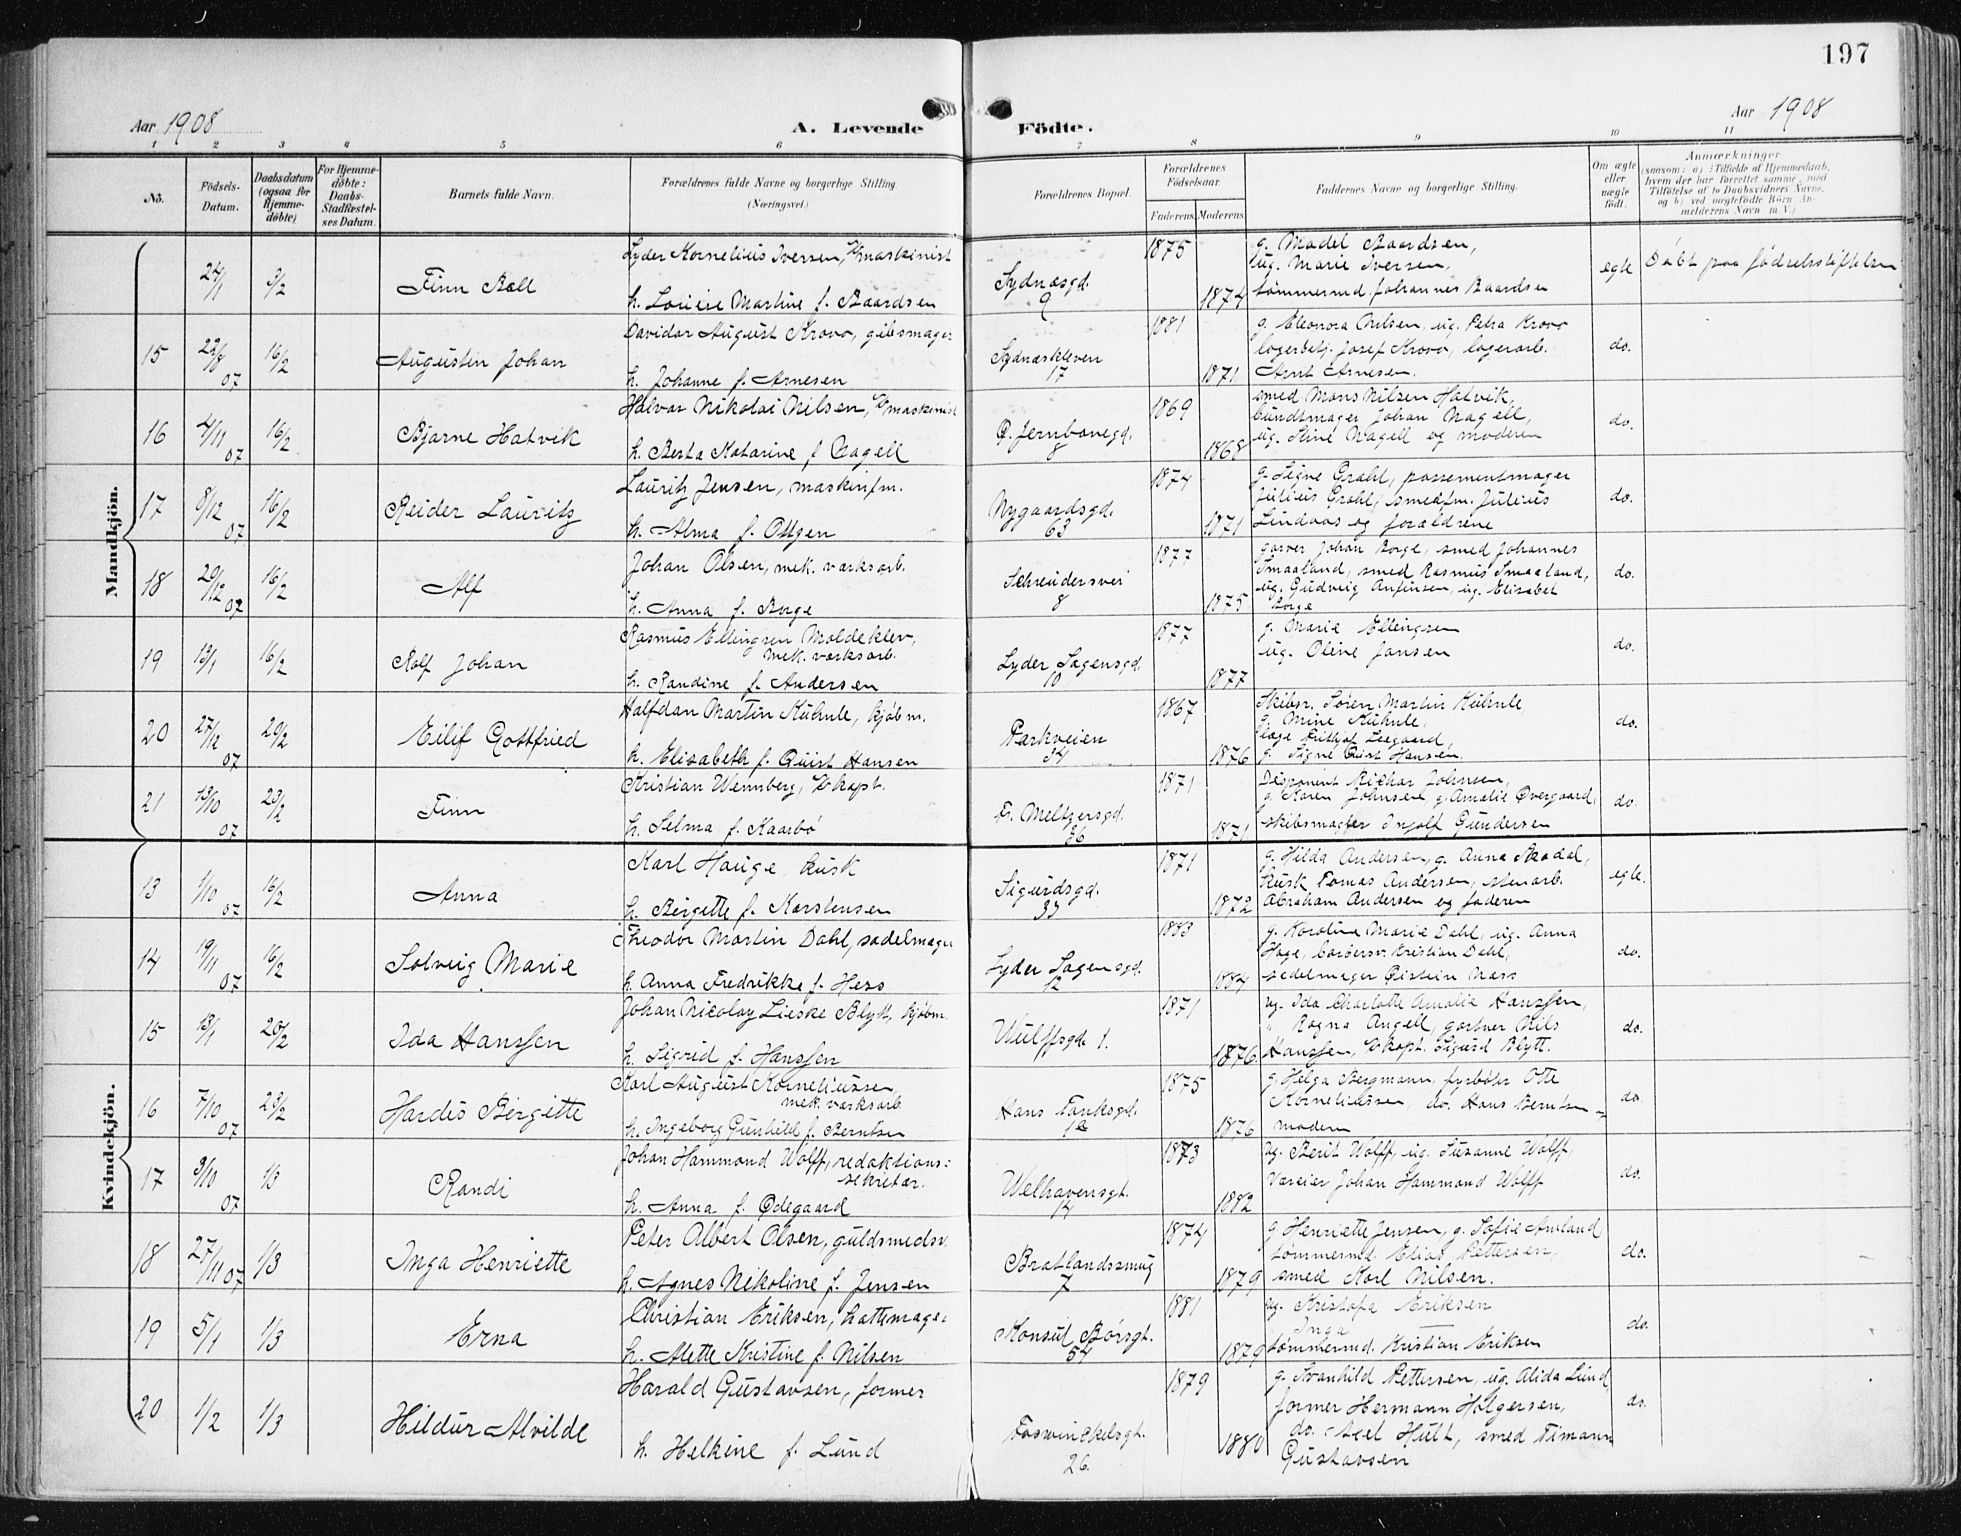 197
Aar 1908
A. Levende
Födte.
Aar 1908
1 2 3 4 5 6 7 8 9 10 11
No.
Födsels-Datum.
Daabsdatum (ogsaa for Hjemme-döbte)
For Hjemme-döbte: Daabs-Stadfæstel-ses Datum.
Barnets fulde Navn.
Forældrenes fulde Navne og borgerlige Stilling.
(Næringsvei.)
Forældrenes Bopæl.
Forældrenes Födselsaar.
Faderens Moderens
Faddernes Navne og borgerlige Stilling.
Om ægte eller uægte födt.
Anmærkninger
(saasom: a) i Tilfælde af Hjemmedaab,
hvem der har forrettet samme, med
Tilföielse af to Daabsvidners Navne,
og b) ved uægtefödte Börn An-
melderens Navn m. V.)
Mandkjön.
24/1 3/2 Finn
Lyder Kornelius Iversen, maskinist
h. Martine f. Baardsen
Sydnæsgd. 9
1875 1874
Baardsen,
ug. Marie Iversen,
tømmermd. Johannes Baardsen
egte
Døbt paa fødselsstiftelsen
15 22/8 07 16/2 Augustin Johan
August Krovo, gibsmager
h. Johanne f. Arnesen
Sydnæskleven 17
1881 1871
g. Eleonora Nilsen, ug. Petra Krovo
Josef Krovo, lagerarb.
Arnt Arnesen.
do.
16 4/11 07 16/2 Bjarne Hatvik
Halvar Nikolai Nilsen, maskinist
h. Berta Katarine f. Nagell
Ø. Jernbanegd. 8
1869 1868
smed Mons Nilsen Hatvik,
bundtmager Johan Nagell,
ug. Stine Nagell og moderen
do.
17 8/12 07 16/2 Reider Lauritz
Lauritz Jensen, maskinfm.
h. Alma f.
Nygaardsgd. 63
1874 1871
g. Signe Grahl, possementmager
Julius Grahl, smedfm. Julius
Lindaas og forældrene
do.
18 29/12 07 16/2 Alf
Johan Olsen, mek. værksarb.
h. Anna f. Borge
8
1877 1875
garver Johan Borge, smed Johannes
Smaaland, smed Rasmus Smaaland,
ug. Gudveig Anfinsen, ug. Elisabet
Borge
do.
19 13/1 16/2 Rolf Johan
Rasmus Ellingsen Moldeklev,
mek. værksarb.
h. Randine f. Andersen
Lyder Sagensgd. 10
1877 1877
g. Marie Ellingsen
ug. Oline Jansen
do.
20 27/12 07 20/2 Eilif Gottfried
Halfdan Martin Kühnle, kjøbm.
h. Elisabeth f. Quist Hansen
Parkveien 34
1867 1876
Skibsr. Søren Martin Kühnle
g. Mine Kühnle,
Læge Fritjof Leegaard
g. Signe Quist Hansen.
do.
21 13/10 07 23/2 Finn
Kristian Wennberg, kapt.
h. Selma f. Kaarbø
Fr. Meltzersgd. 36
1871 1871
Disponent Richar Johnsen,
g. Karen Johnsen g. Amalie Overgaard,
skibsmægler Ingolf Gundersen
do.
Kvindekjön.
13 1/10 07 16/2 Anna
Karl Hauge, kusk
h. Birgitte f. Karstensen
Sigurdsgd. 33
1871 1872
g. Hilda Andersen, g. Anna
Kusk Tomas Andersen, stenarb.
Abraham Andersen og faderen
egte.
14 19/11 07 16/2 Solveig Marie
Theodor Martin Dahl, sadelmager
h. Anna Fredrikke f. Hess
Lyder Sagensgd. 12
1883 1884
g. Karoline Marie Dahl, ug. Anna
Hage, Kristian Dahl,
sadelmager Øistein Næss
do.
15 13/1 20/2 Ida Hanssen
Johan Nicolay Lieske Blytt, kjøbm.
h. Sigrid f. Hanssen
Wulffsgd. 1.
1871 1876
ug. Ida Charlotte Amalie Hanssen,
" Ragna Angell, gartner Nils
Hanssen, kapt. Sigurd Blytt.
do.
16 7/10 07 23/2 Hardis Birgitte
Karl August Korneliussen
mek. værksarb.
h. Ingeborg Gunhild f. Berntsen
Hans Tanksgd. 12
1875 1876
g. Helga Bergmann, fyrbøter Otto
Korneliussen, do. Hans Berntsen
moderen
do.
17 9/10 07 1/3 Randi
Johan Hammond Wolff, redaktions-
sekretær.
h. Anna f. Ødegaard
Welhavensgt. 14
1873 1882
ug. Berit Wolff, ug. Suzanne Wolff,
Johan Hammond Wolff
do.
18 27/11 07 1/3 Inga Henriette
Peter Albert Olsen, guldsmedsv.
h. Agnes Nikoline f. Jensen
Bratlandssmug 7
1874 1879
g. Henriette Jensen, g. Sofie
tømmermd. Elias Pettersen,
smed Karl Nilsen.
do.
19 5/1 1/3 Erna
Christian Eriksen, hattemager
h. Alette Kristine f. Nilsen
Konsul Børsgt. 54
1881 1879
ug. Kristofa Eriksen
Inga
tømmermd. Kristian Eriksen
do.
20 1/2 1/3 Hildur Alvilde
Harald Gustavsen, former
h. Helkine f. Lund
Foswinckelsgt. 26.
1879 1880
g. Svanhild Pettersen, ug. Alida Lund,
former Hermann Holgersen,
do. Axel Hult, smed Timann
Gustavsen
do.